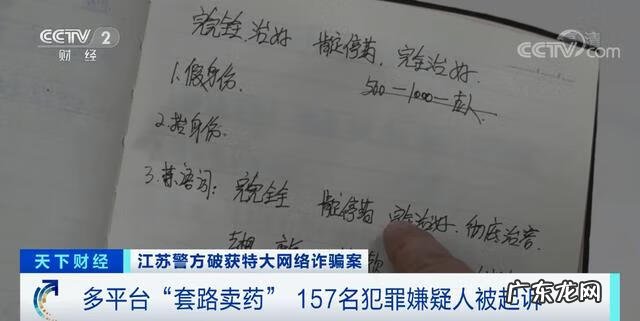 CCTV 2
财经
CCTV.com
完完全全治好 肯定停药 完全治好
1.假身份.
500—1000—
2.若身份.
3.禁语词: 完完全全 肯定停药 完全治好.彻底治着.
天下财经
江苏警方破获特大网络诈骗案
多平台“套路卖药” 157名犯罪嫌疑人被起诉
广东龙网